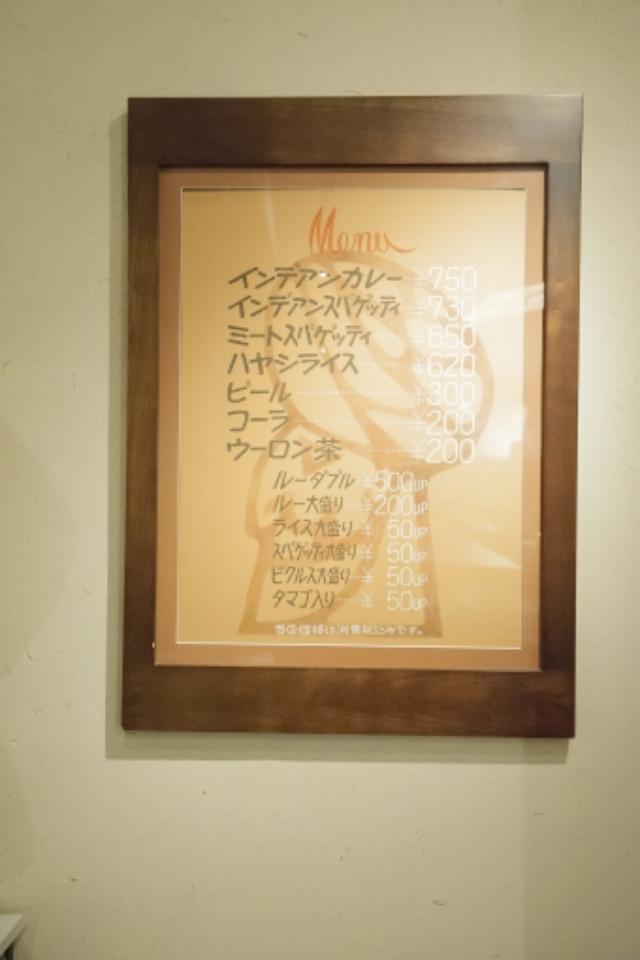 Menu
インデアンカレー ¥750
インデアンスパゲッティ ¥730
ミートスパゲッティ ¥650
ハヤシライス ¥620
ビール ¥300
コーラ ¥200
ウーロン茶 ¥200
ルーダブル ¥500UP
ルー大盛り ¥200UP
ライス大盛り ¥50UP
スパゲッティ大盛り ¥50UP
ピクルス大盛り ¥50UP
タマゴ入り ¥50UP
当店価格は消費税込みです。